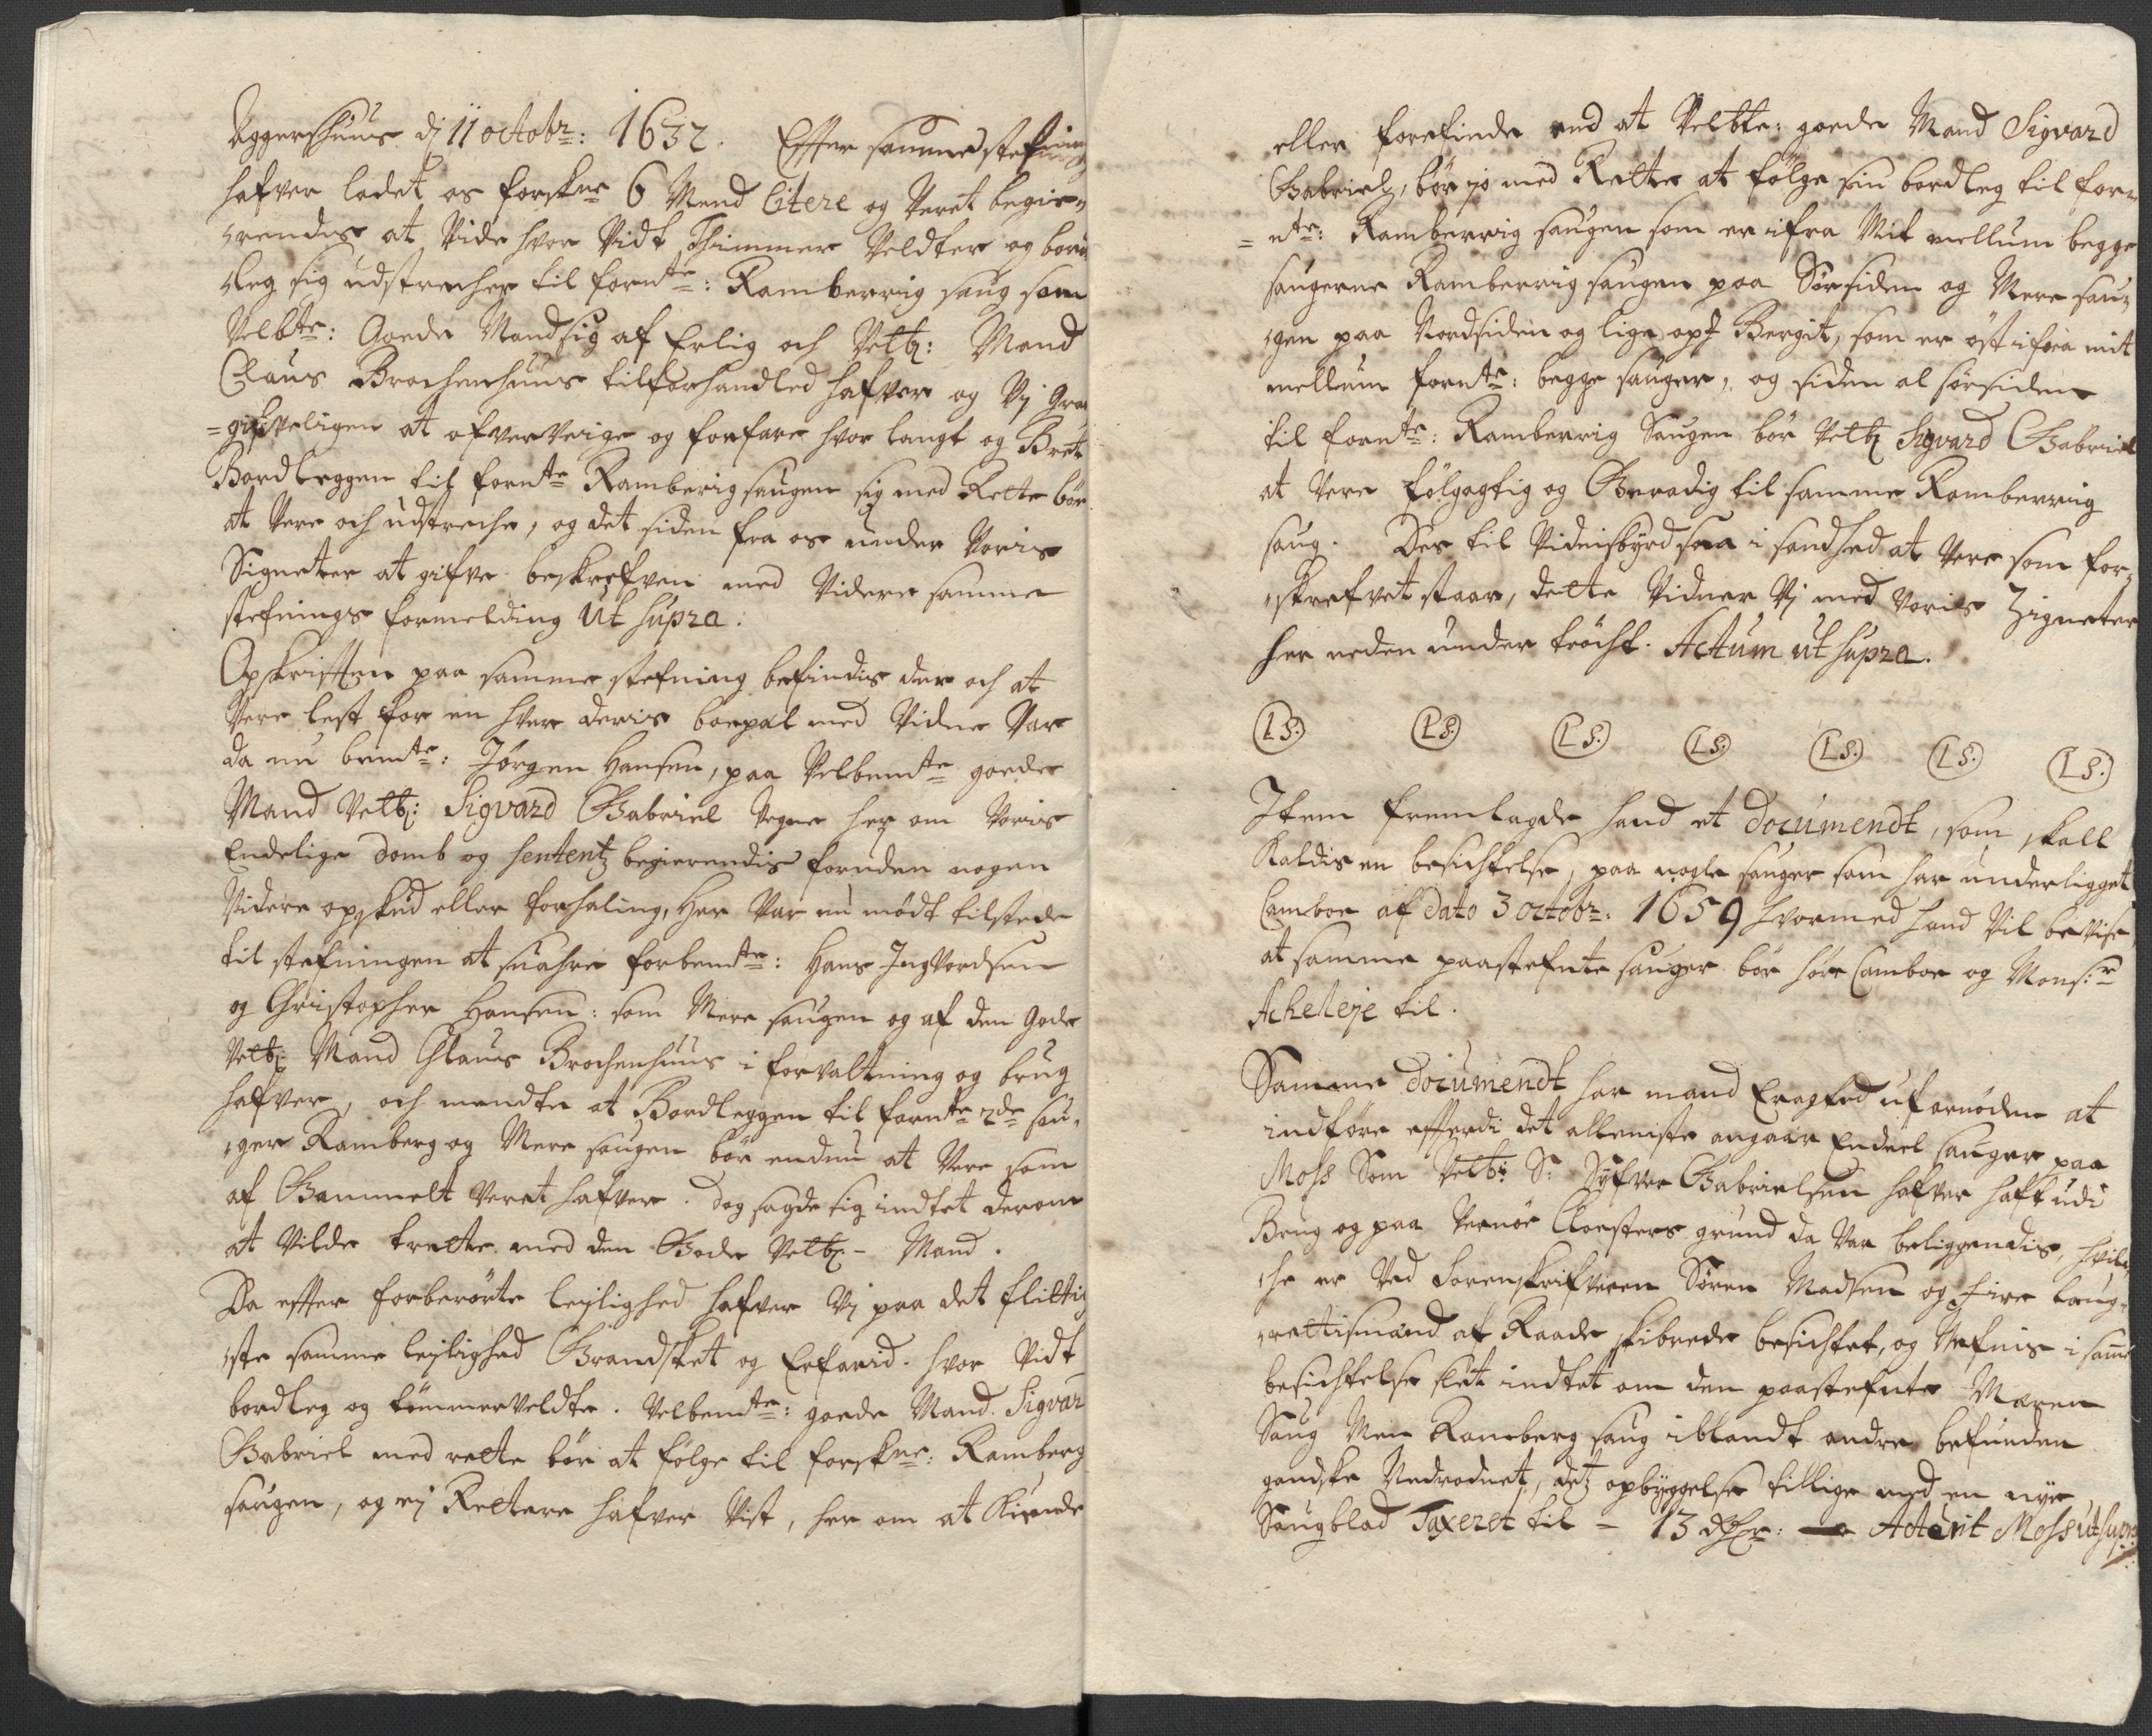 Aggershuus dj 11 octobr: 1632. Effter samme stefning
hafver ladet os forskne 6 Mend Citere og Veret begie-
rendis at Vide hvor Vidt Thimmer Veldter og bord
leg sig udstrecher til fornte: Ramberrig saug som
Velbte: Goede Mand sig af Erlig och Velb: Mand
Claus Brochenhuus tilforhandled hafver og Vj
at ofverveige og forfare hvor langt og Bret
Bordleggen til fornte Ramberig saugen sig med Rette bør
at Vere och udstreche, og det siden fra os under Voris
Signeter at gifve beskrefven med Videre samme
stefnings formelding ut supra.
Opskrifften paa samme stefning befindis der och at
Vere lest for en hver deris boepæl med Vidne Var
da nu bemte: Jørgen Hansen, paa Velbemte goede
Mand Velb: Sigvard Gabriel Vegne her om Voris
Endelige domb og sententz begierendis foruden nogen
Videre opskud eller forhaling, Her Var nu mødt tilstede
til stefningen at suahre forbemte: Hans Ingvordsen
og Christopher Hansen: som Mere saugen og af den Gode
Velb: Mand Claus Brochenhuus i forvaltning og brug
hafver, och mendte at Bordleggen til fornte 2de sau-
ger Ramberg og Mere saugen bør endnu at Vere som
af Gammelt Veret hafver. dog sagde sig indtet derom
at Vilde trette med den Gode Velb: Mand.
Da effter forberørte leylighed hafver Vj paa det flittig
ste samme leylighed Grandsket og Erfarid. hvor Vidt
bordleg og tømmerveldte. Velbemte: goede Mand Sigvar
Gabriel med rette bør at følge til forskne: Ramberg
saugen, og ej Rettere hafver Vist, her om at Kiende
eller forefinde end at Velbte: goede Mand Sigvard
Gabriel, bør jo med Rette at følge sin bordleg til for-
nte: Ramberrig saugen som er ifra Mit mellum begge
saugerne Ramberrig saugen paa Sørsiden og Mere sau-
gen paa Nordsiden og lige op J Bergit, som er øst ifra mit
mellum fornte: begge sauger, og siden al sørsiden
til fornte: Ramberrig Saugen bør Velb Sigvard Gabriel
at Vere følgagtig og Beradig til samme Ramberrig
saug. Des til Vidnisbyrd saa i sandhed at Vere som for-
skrefvet staar, dette Vidner Vj med Voris Zigneter
her neden under trøcht. Actum ut supra.
L S. L S. L S. L S. L S. L S. L S.
Item fremlagde hand et documendt, som skall
Kaldis en besichtelse, paa nogle sauger som har underligget
Camboe af dato 3 octobr: 1659 hvormed hand Vil bevise,
at samme paastefnte sauger bør høre Camboe og Monsr
Acheleje til.
Samme documendt har mand Eragted ufornøden at
indføre efferdi det alleeniste angaar Endeel sauger paa
Moss Som Velb: S: Syfver Gabrielsen hafver haft udi
Brug og paa Vernøe Cloesters grund da Var beliggendis, hvil-
che er Ved Sorenskrifveren Søren Madsen og fire laug-
rettismænd af Raade skibrede besichtet, og Nefnis i samme
besichtelse slet indtet om den paastefnte Maren
Saug Men Ramberg saug iblandt andre befunden
gandske Nedraadnet, detz opbyggelse tillige med en nye
Saugblad Taxeret til - 13 dlr: Actum Moss ut supra